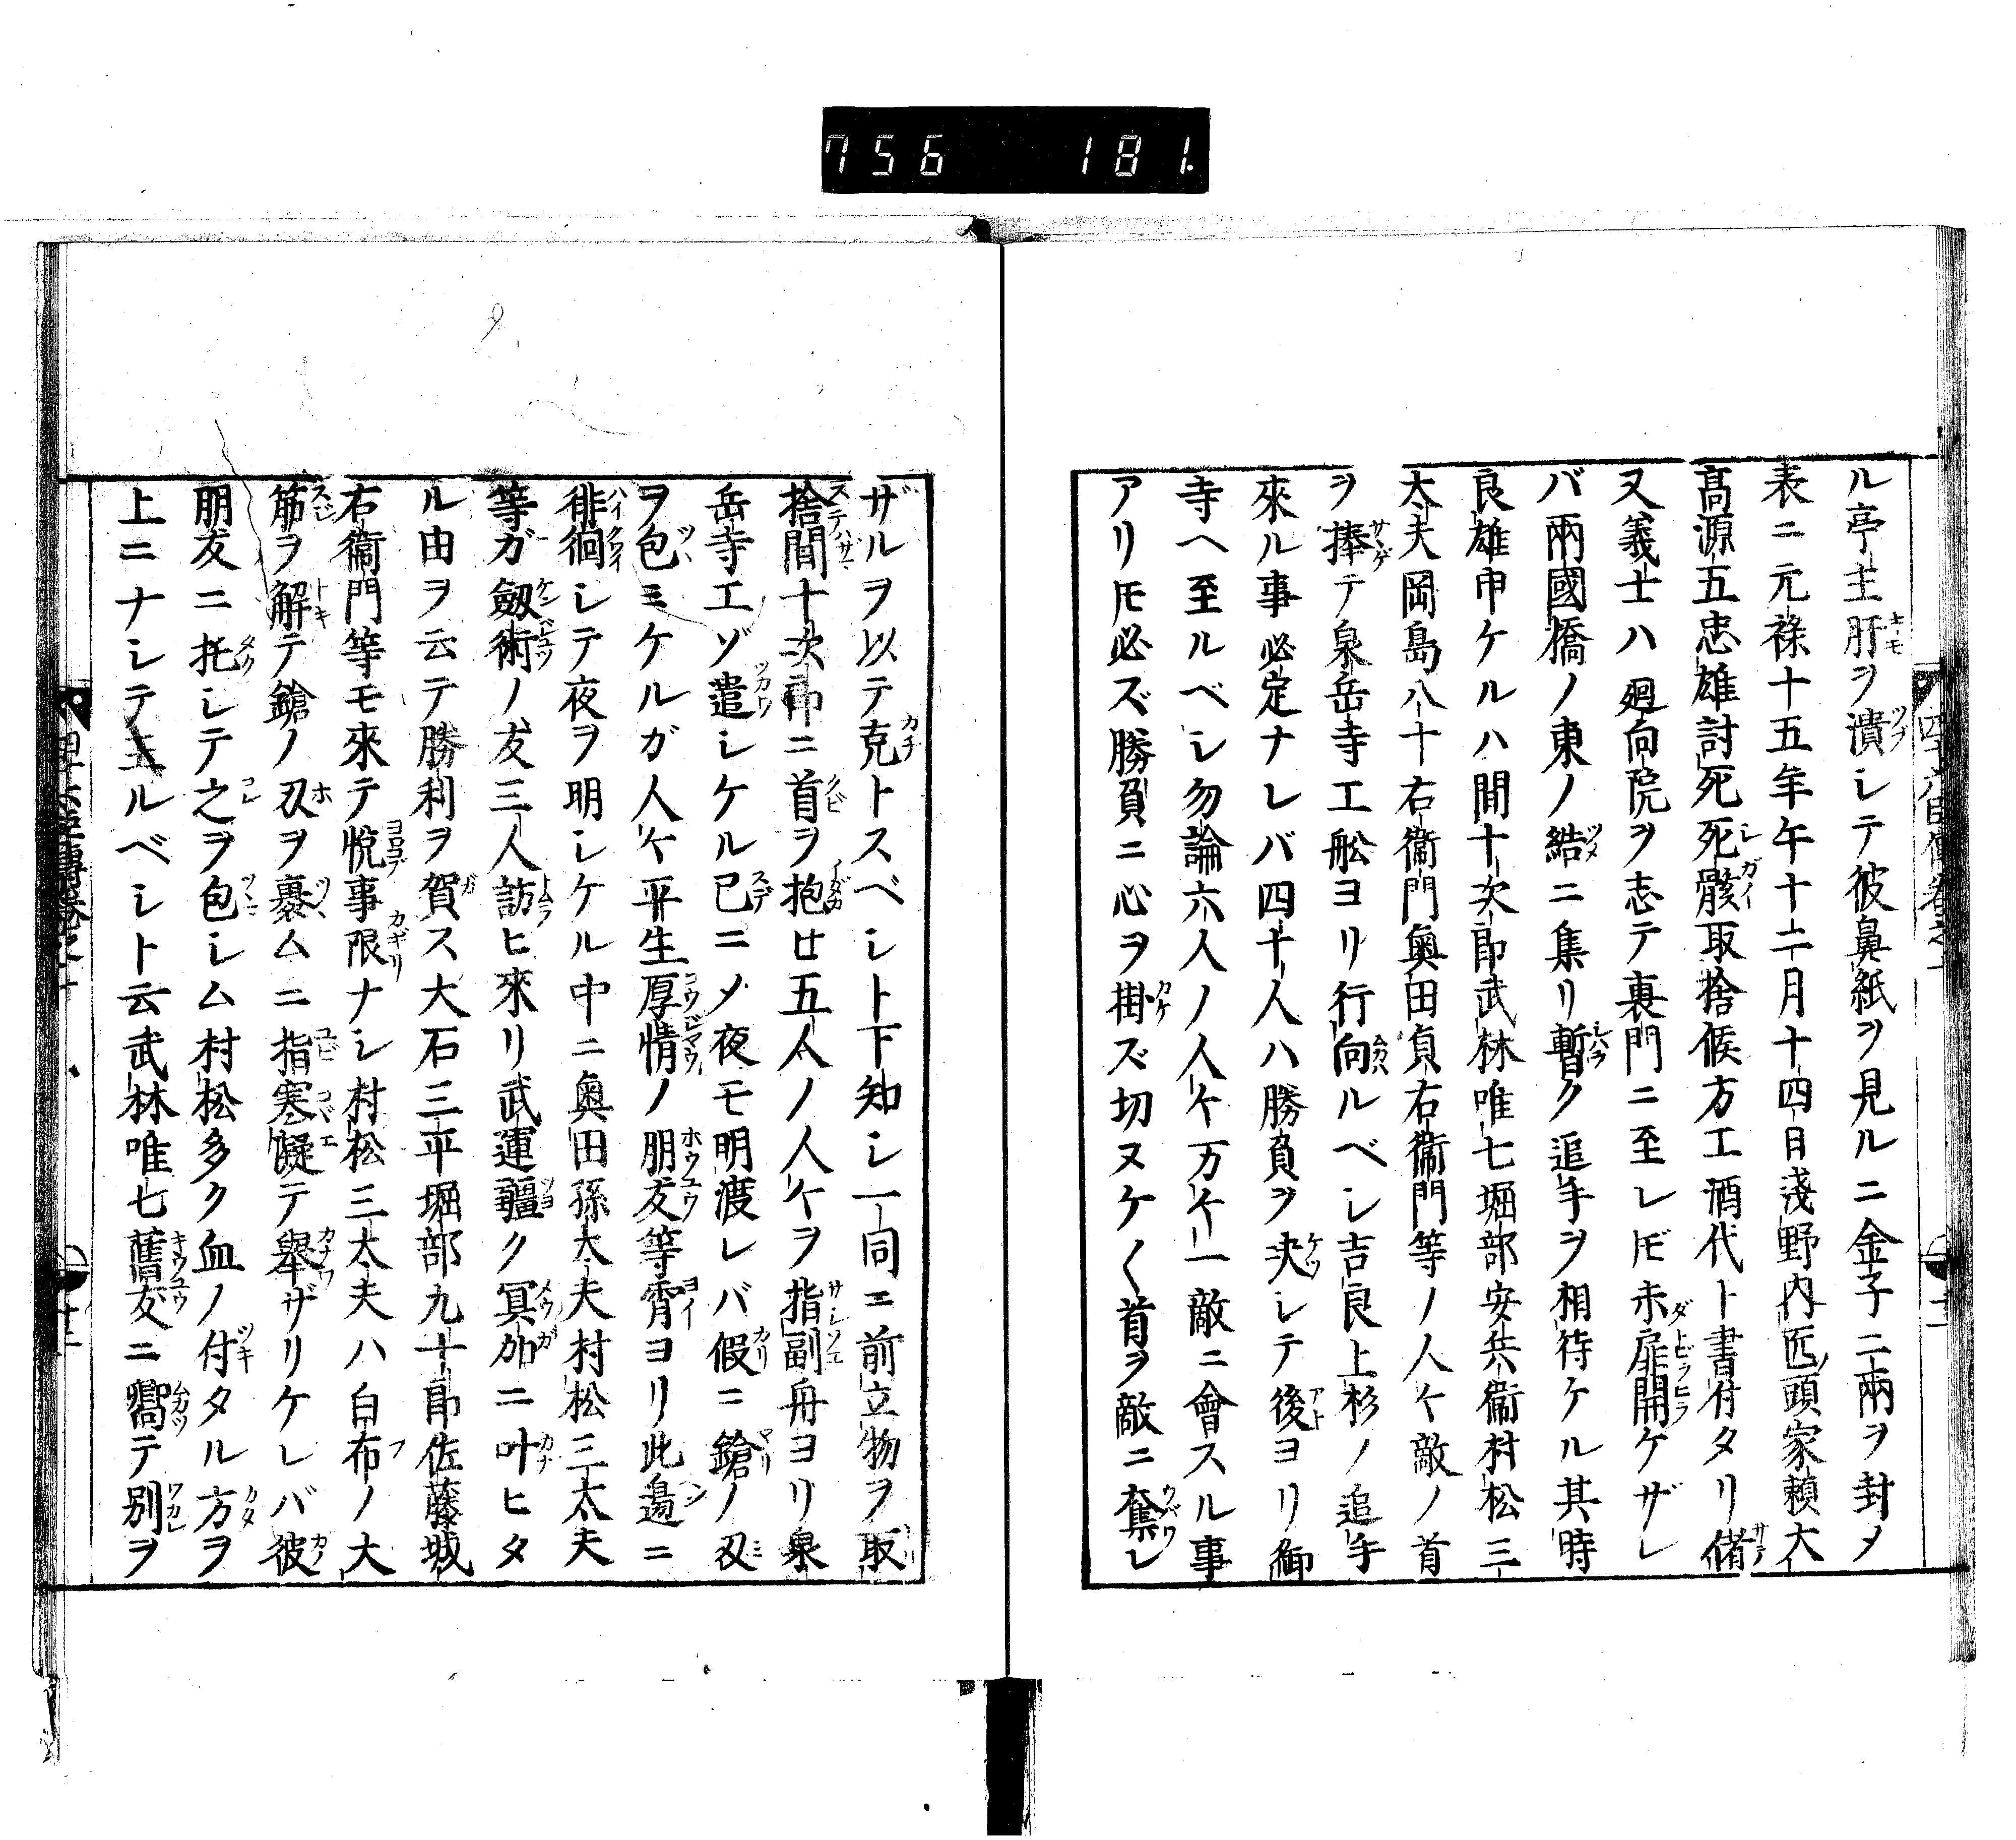 756 181
ル亭主肝ヲ潰シテ彼鼻紙ヲ見ルニ金子二兩ヲ封メ
表ニ元祿十五年午十二月十四日淺野内匠頭家頼大
髙源五忠雄討死死骸取捨候方エ酒代ト書付タリ偖
又義士ハ廻向院ヲ志テ裏門ニ至レ𪜈未扉開ケザレ
バ兩國橋ノ東ノ結ニ集リ暫ク追手ヲ相待ケル其時
良雄申ケルハ間十次郎武林唯七堀部安兵衞村松三
太夫岡島八十右衞門奥田貞右衞門等ノ人々敵ノ首
ヲ捧テ泉岳寺エ舩ヨリ行向ルベシ吉良上杉ノ追手
來ル事必定ナレバ四十人ハ勝負ヲ决シテ後ヨリ御
寺ヘ至ルベシ勿論六人ノ人々万々一敵ニ會スル事
アリ𪜈必ズ勝負ニ心ヲ掛ズ切ヌケ〱首ヲ敵ニ奪レ
ザルヲ以テ克トスベシト下知シ一同ニ前立物ヲ取
捨間十次郎ニ首ヲ抱廿五人ノ人々ヲ指副舟ヨリ泉
岳寺エゾ遣シケル已ニメ夜モ明渡レバ假ニ鎗ノ刄
ヲ包ミケルガ人々平生厚情ノ朋友等宵ヨリ此邊ニ
徘徊シテ夜ヲ明シケル中ニ奥田孫太夫村松三太夫
等ガ劔術ノ友三人訪ヒ來リ武運彊ク冥加ニ叶ヒタ
ル由ヲ云テ勝利ヲ賀ス大石三平堀部九十郎佐藤城
右衞門等モ來テ悦事限ナシ村松三太夫ハ白布ノ大
筋ヲ解テ鎗ノ刄ヲ裹ムニ指寒凝テ舉ザリケレバ彼
朋友ニ托シテ之ヲ包シム村松多ク血ノ付タル方ヲ
上ニナシテ玉ルベシト云武林唯七舊友ニ嚮テ別ヲ